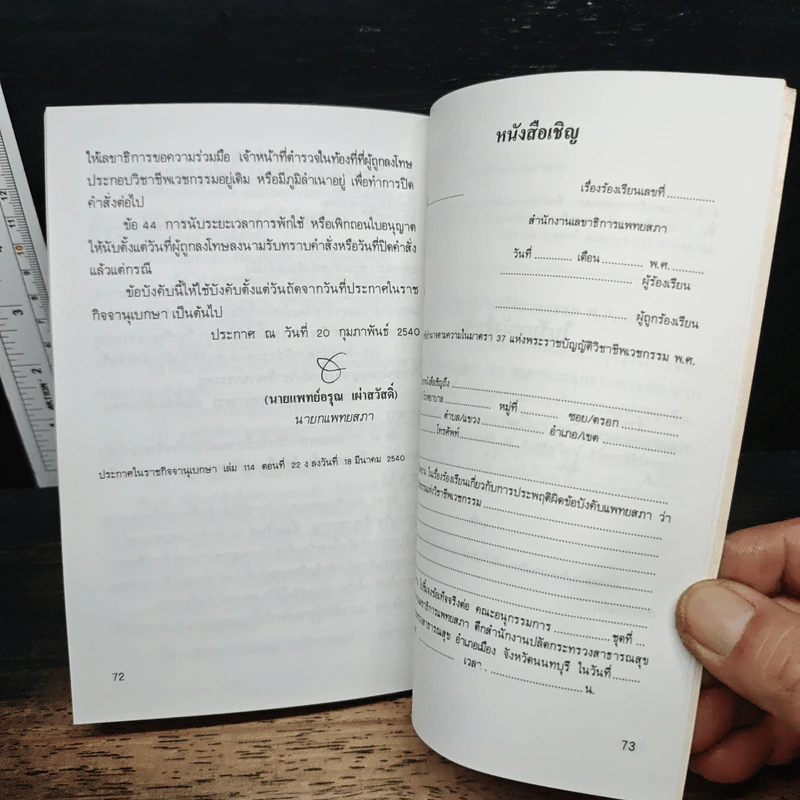 ให้เลขาธิการขอความร่วมมือ เจ้าหน้าที่ตำรวจในท้องที่ที่ผู้ถูกลงโทษ
ประกอบวิชาชีพเวชกรรมอยู่เดิม หรือมีภูมิลำเนาอยู่ เพื่อทำการปิด
คำสั่งต่อไป
ข้อ 44 การนับระยะเวลาการพักใช้ หรือเพิกถอนใบอนุญาต
ให้นับตั้งแต่วันที่ผู้ถูกลงโทษลงนามรับทราบคำสั่งหรือวันที่ปิดคำสั่ง
แล้วแต่กรณี
ข้อบังคับนี้ให้ใช้บังคับตั้งแต่วันถัดจากวันที่ประกาศในราช
กิจจานุเบกษา เป็นต้นไป
ประกาศ ณ วันที่ 20 กุมภาพันธ์ 2540
(นายแพทย์อรุณ เผ่าสวัสดิ์)
นายกแพทยสภา
ประกาศในราชกิจจานุเบกษา เล่ม 114 ตอนที่ 22 ง ลงวันที่ 18 มีนาคม 2540
72
หนังสือเชิญ
เรื่องร้องเรียนเลขที่............
สำนักงานเลขาธิการแพทยสภา
วันที่............ เดือน ............ พ.ศ. ............
............ ผู้ร้องเรียน
............ ผู้ถูกร้องเรียน
อำนาจตามความในมาตรา 37 แห่งพระราชบัญญัติวิชาชีพเวชกรรม พ.ศ.
หนังสือเชิญถึง............
............ หมู่ที่ ............ ซอย/ตรอก ............
............ ตำบล/แขวง ............ อำเภอ/เขต ............
............ โทรศัพท์............
ในเรื่องร้องเรียนเกี่ยวกับการประพฤติผิดข้อบังคับแพทยสภา ว่า
แห่งวิชาชีพเวชกรรม............
ไปชี้แจงข้อเท็จจริงต่อ คณะอนุกรรมการ ............ ชุดที่ ...
เลขาธิการแพทยสภา ตึกสำนักงานปลัดกระทรวงสาธารณสุข
สาธารณสุข อำเภอเมือง จังหวัดนนทบุรี ในวันที่............
............ เวลา ............ น.
73